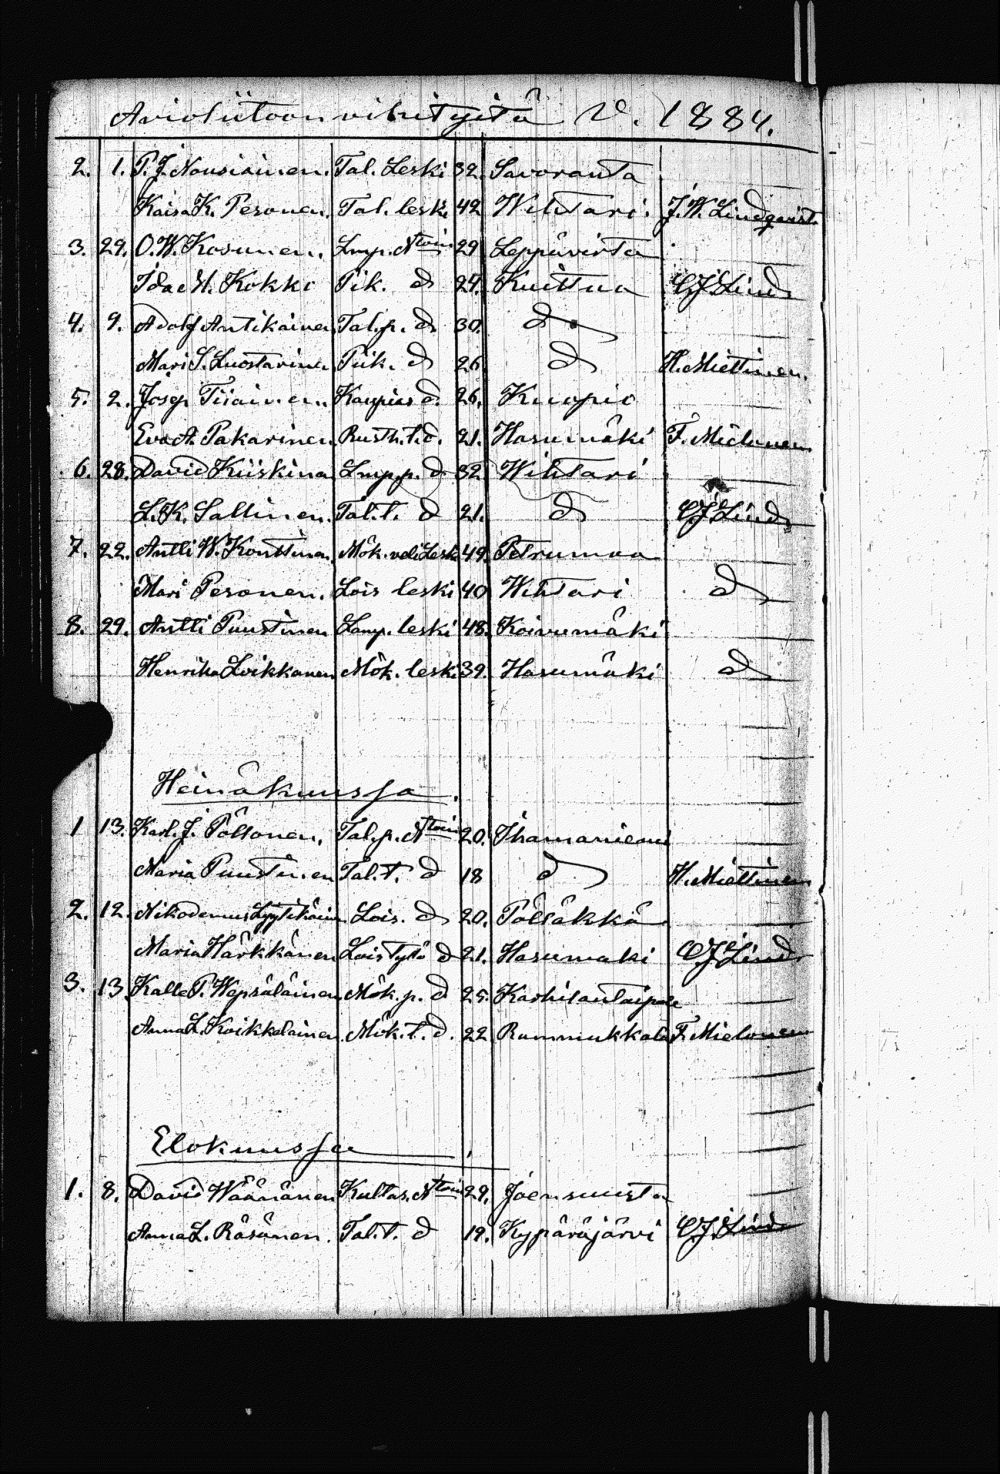 Avioliitoon vihityitä V. 1884.
2. 1. P. J. Nousiainen. Tal. Leski 32. Savoranta
Kaisa K. Pesonen. Tal. leski 42 Wihtari. J. W. Lindqvist
3. 29. O. W. Kosunen. Lmp. Ntoin 29 Leppävirta
Ida M. Kokki Pik. d 24. Kuittua C J Lind
4. 9. Adolf Antikainen Tal.p. d 30. d
Mari S. Luostarinen Piik. d 26 d H. Miettinen.
5. 2. Josep Tiiainen. Kaupias d. 26. Kuopio
Eva A. Pakarinen Rusth.t.d. 21. Hasumäki F. Mielonen
6. 28. David Kiiskinen Lmp.p. d 32 Wihtari
L. K. Sallinen. Tal.t. d 21. d C J Lind
7. 22. Antti W. Konttinen Mök. veli Leski 49. Petrumaa
Mari Pesonen. Lois leski 40 Wihtari d
8. 29. Antti Puustinen Lamp. leski 48. Koivumäki
Henrika Loikkanen Mök. leski 39. Hasumäki d
Heinäkuussa.
1 13. Karl. J. Pöllönen. Tal.p. Ntoin 20. Ihamaniemi
Maria Puustinen Tal.t. d 18 d H. Miettinen
2. 12. Nikodemus Lyytikäinen Lois. d 20. Pölläkkä
Maria Härkkänen Loistytö d 21. Hasumaki C J Lind
3. 13 Kalle P. Wepsäläinen Mök. p. d 25.
Anna L. Koikkalainen Mök. t. d. 22 Rummukkala F. Mielonen
Elokuussa.
1. 8. David Wäänänen Kultas. Ntoin 29. Joensuusta
Anna L. Räsänen. Tal.t. d 19. Kypäräjärvi C J. Lind